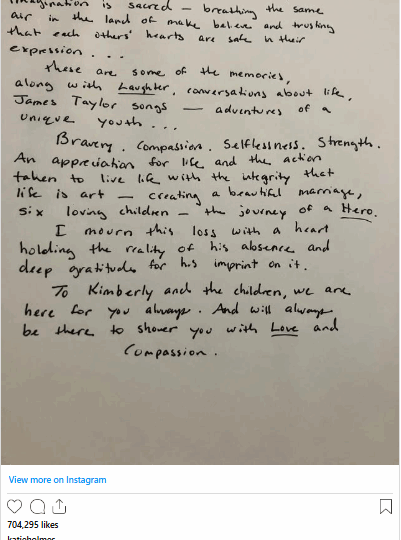 imagination is sacred — breathing the same
air in the land of make believe and trusting
that each others' hearts are safe in their
expression . . .
these are some of the memories,
along with Laughter, conversations about life,
James Taylor songs — adventures of a
unique youth . . .
Bravery. Compassion. Selflessness. Strength.
An appreciation for life and the action
taken to live life with the integrity that
life is art — creating a beautiful marriage,
six loving children — the journey of a Hero.
I mourn this loss with a heart
holding the reality of his absence and
deep gratitude for his imprint on it.
To Kimberly and the children, we are
here for you always. And will always
be there to shower you with Love and
Compassion.
View more on Instagram
704,295 likes
katieholmes